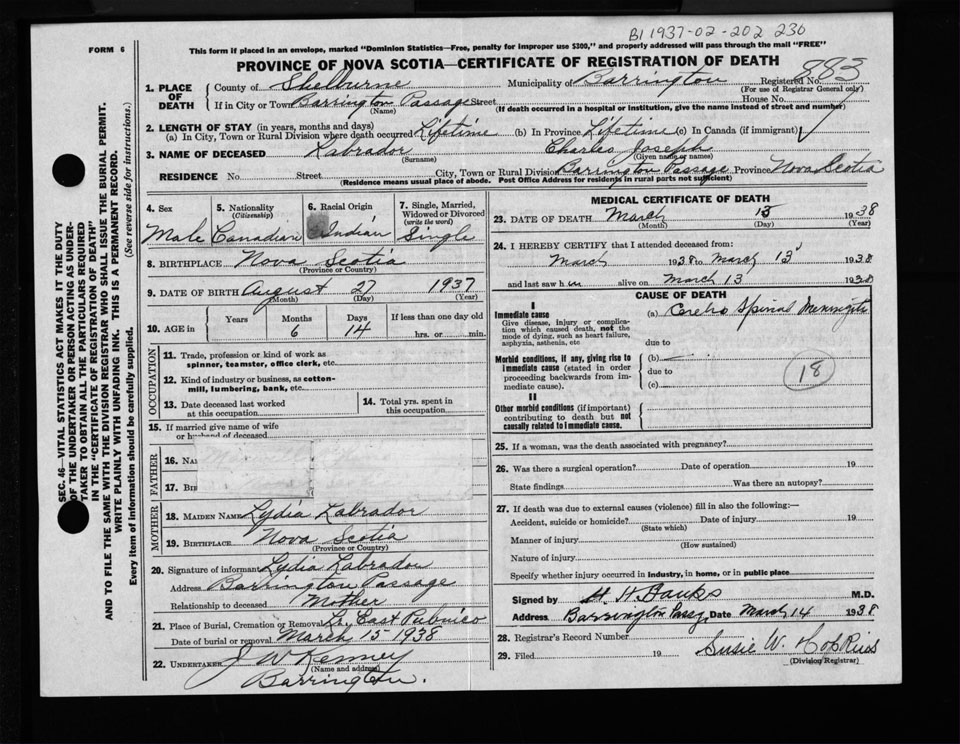 B1 1937-02-202 230
FORM 6
This form if placed in an envelope, marked "Dominion Statistics—Free, penalty for improper use $300," and properly addressed will pass through the mail "FREE"
PROVINCE OF NOVA SCOTIA—CERTIFICATE OF REGISTRATION OF DEATH
883
1. PLACE OF DEATH
County of Shelburne Municipality of Barrington Registered No.
(For use of Registrar General only)
If in City or Town Barrington Passage Street House No.
(Name) (If death occurred in a hospital or institution, give the name instead of street and number)
2. LENGTH OF STAY (in years, months and days)
(a) In City, Town or Rural Division where death occurred Lifetime (b) In Province Lifetime (c) In Canada (if immigrant)
3. NAME OF DECEASED Labrador Charles Joseph
(Surname) (Given name or names)
RESIDENCE No. Street City, Town or Rural Division Barrington Passage Province Nova Scotia
(Residence means usual place of abode. Post Office Address for residents in rural parts not sufficient)
4. Sex 5. Nationality (Citizenship) 6. Racial Origin 7. Single, Married, Widowed or Divorced (write the word)
Male Canadian Indian Single
8. BIRTHPLACE Nova Scotia
(Province or Country)
9. DATE OF BIRTH August 27 1937
(Month) (Day) (Year)
10. AGE in Years Months Days If less than one day old
6 14 hrs. or min.
OCCUPATION
11. Trade, profession or kind of work as spinner, teamster, office clerk, etc.
12. Kind of industry or business, as cotton-mill, lumbering, bank, etc.
13. Date deceased last worked at this occupation
14. Total yrs. spent in this occupation
15. If married give name of wife
or husband of deceased
FATHER
16. Na
17. Bir
MOTHER
18. MAIDEN NAME Lydia Labrador
19. BIRTHPLACE Nova Scotia
(Province or Country)
20. Signature of informant Lydia Labrador
Address Barrington Passage
Relationship to deceased Mother
21. Place of Burial, Cremation or Removal East Pubnico
Date of burial or removal March 15 1938
22. UNDERTAKER J W Kenney
(Name and address)
Barrington.
MEDICAL CERTIFICATE OF DEATH
23. DATE OF DEATH March 13 1938
(Month) (Day) (Year)
24. I HEREBY CERTIFY that I attended deceased from:
March 1938 to March 13 1938
and last saw h im alive on March 13 1938
CAUSE OF DEATH
I
Immediate cause
Give disease, injury or complication which caused death, not the mode of dying, such as heart failure, asphyxia, asthenia, etc
(a) Cerebro Spinal Meningitis
due to
Morbid conditions, if any, giving rise to immediate cause (stated in order proceeding backwards from immediate cause).
(b)
due to
(c)
18
II
Other morbid conditions (if important) contributing to death but not causally related to immediate cause.
25. If a woman, was the death associated with pregnancy?
26. Was there a surgical operation? Date of operation 19
State findings Was there an autopsy?
27. If death was due to external causes (violence) fill in also the following:—
Accident, suicide or homicide? Date of injury 19
(State which)
Manner of injury
(How sustained)
Nature of injury
Specify whether injury occurred in industry, in home, or in public place
Signed by H H Banks M.D.
Address Barrington Passg. Date March 14 1938
28. Registrar's Record Number
29. Filed 19 Susie W. Hopkins
(Division Registrar)
SEC. 46—VITAL STATISTICS ACT MAKES IT THE DUTY
OF THE UNDERTAKER OR PERSON ACTING AS UNDERTAKER TO OBTAIN ALL THE PARTICULARS REQUIRED
IN THE "CERTIFICATE OF REGISTRATION OF DEATH"
AND TO FILE THE SAME WITH THE DIVISION REGISTRAR WHO SHALL ISSUE THE BURIAL PERMIT.
WRITE PLAINLY WITH UNFADING INK. THIS IS A PERMANENT RECORD.
Every item of information should be carefully supplied. (See reverse side for instructions.)